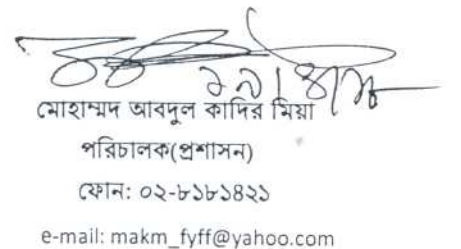 মোহাম্মদ আবদুল কাদির মিয়া
পরিচালক(প্রশাসন)
ফোন: ০২-৮১৮১৪২১
e-mail: makm_fyff@yahoo.com